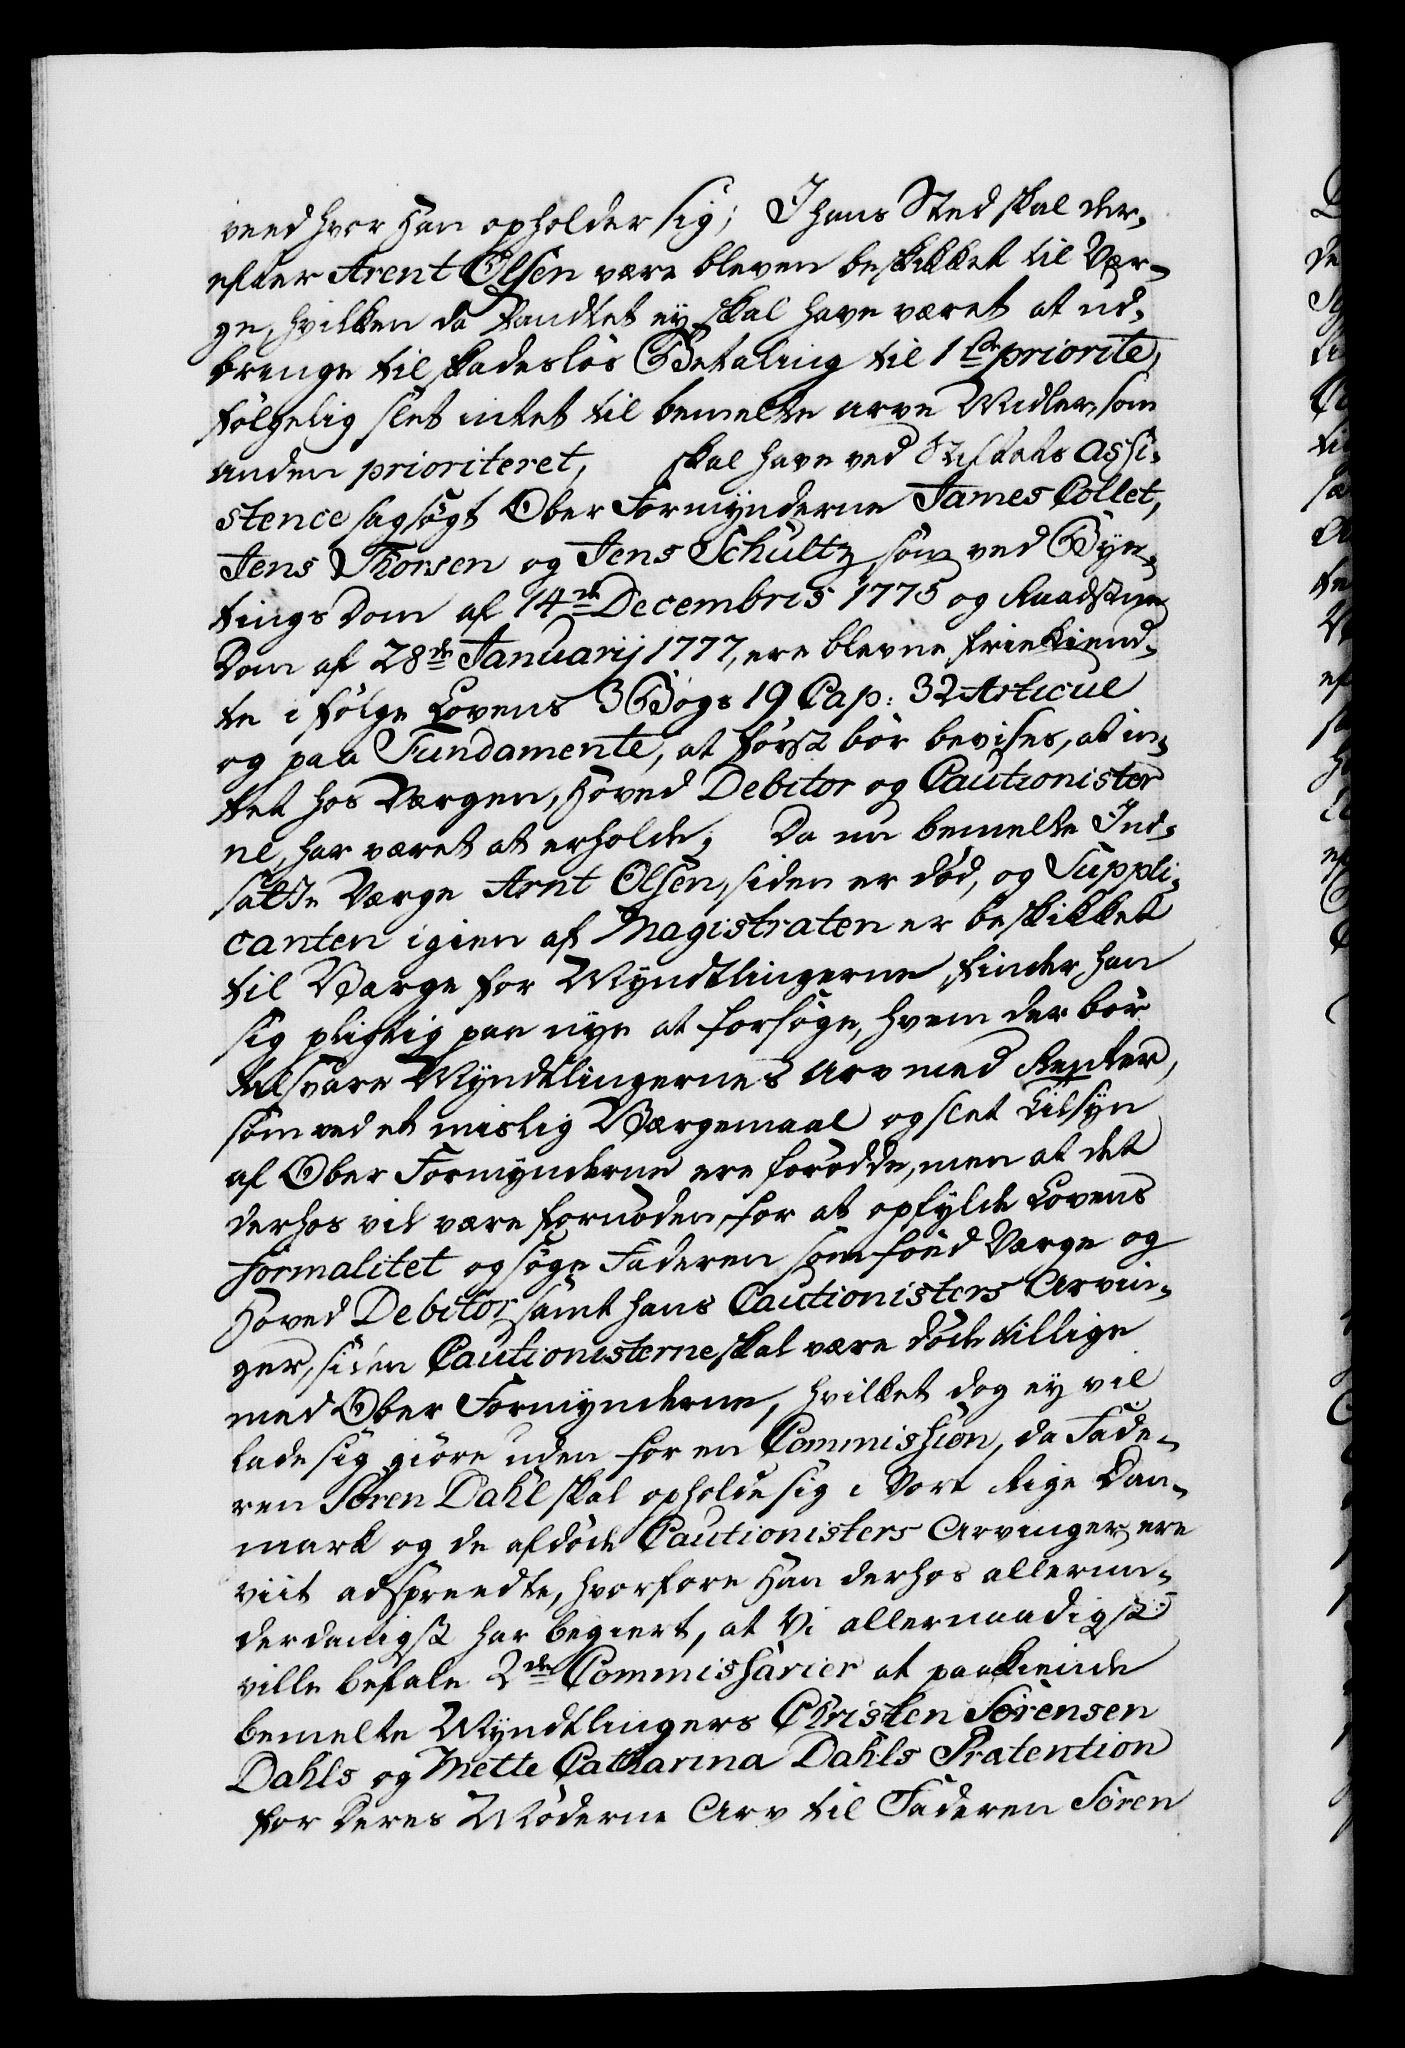 veed hvor Han opholder sig; I hans Sted skal der-
efter Arent Olsen være bleven beskikket til Vær-
ge, hvilken da Fandtet ey skal have været at ud-
bringe til skadesløs Betaling til 1ste priorite,
følgelig slet intet til bemelte arve Midler, som
anden prioriteret, skal have ved Rettens Assi-
stence sagsøgt Ober Formynderne James Collet,
Jens Thorsen og Jens Schultz, som ved Bye-
tings Dom af 14de Decembris 1775 og Raadstue
Dom af 28de Januarij 1777, ere blevne friekiend-
te i følge Lovens 3 Bogs 19 Cap: 32 Articul
og paa Fundamente, at først bør bevises, at in-
tet hos Værgen, Hoved Debitor og Cautionister
ne, har været at erholde; Da nu bemelte Ind-
satte Værge Arnt Olsen, siden er død, og Suppli-
canten igien af Magistraten er beskikket
til Værge for Myndtlingerne, finder han
sig pligtig paa nye at forsøge, hvem der bør
tilsvare Myndtlingernes Arv med Renter,
som ved et mislig Værgemaal og slet Tilsyn
af Ober Formynderne ere forødde, men at det
derhos vil være fornøden, for at opfylde Lovens
formalitet og søge Faderen som føed Værge og
Hoved Debitor, samt hans Cautionisters Arvin-
ger, siden Cautionisterne skal være døde tillige
med Ober Formynderne, hvilket dog ey vil
lade sig giøre uden for en Commission, da Fade-
ren Søren Dahl skal opholde sig i Vort Rige Dan-
mark og de afdøde Cautionisters Arvinger, ere
viit adspreedte, hvorfore Han derhos allerun-
derdanigst har begiert, at Vi allernaadigst
ville befale 2de Commissarier at paakiende
bemelte Myndtlingers Christen Sørensen
Dahls og Mette Catharina Dahls Prætention
for deres Møderne Arv til Faderen Søren